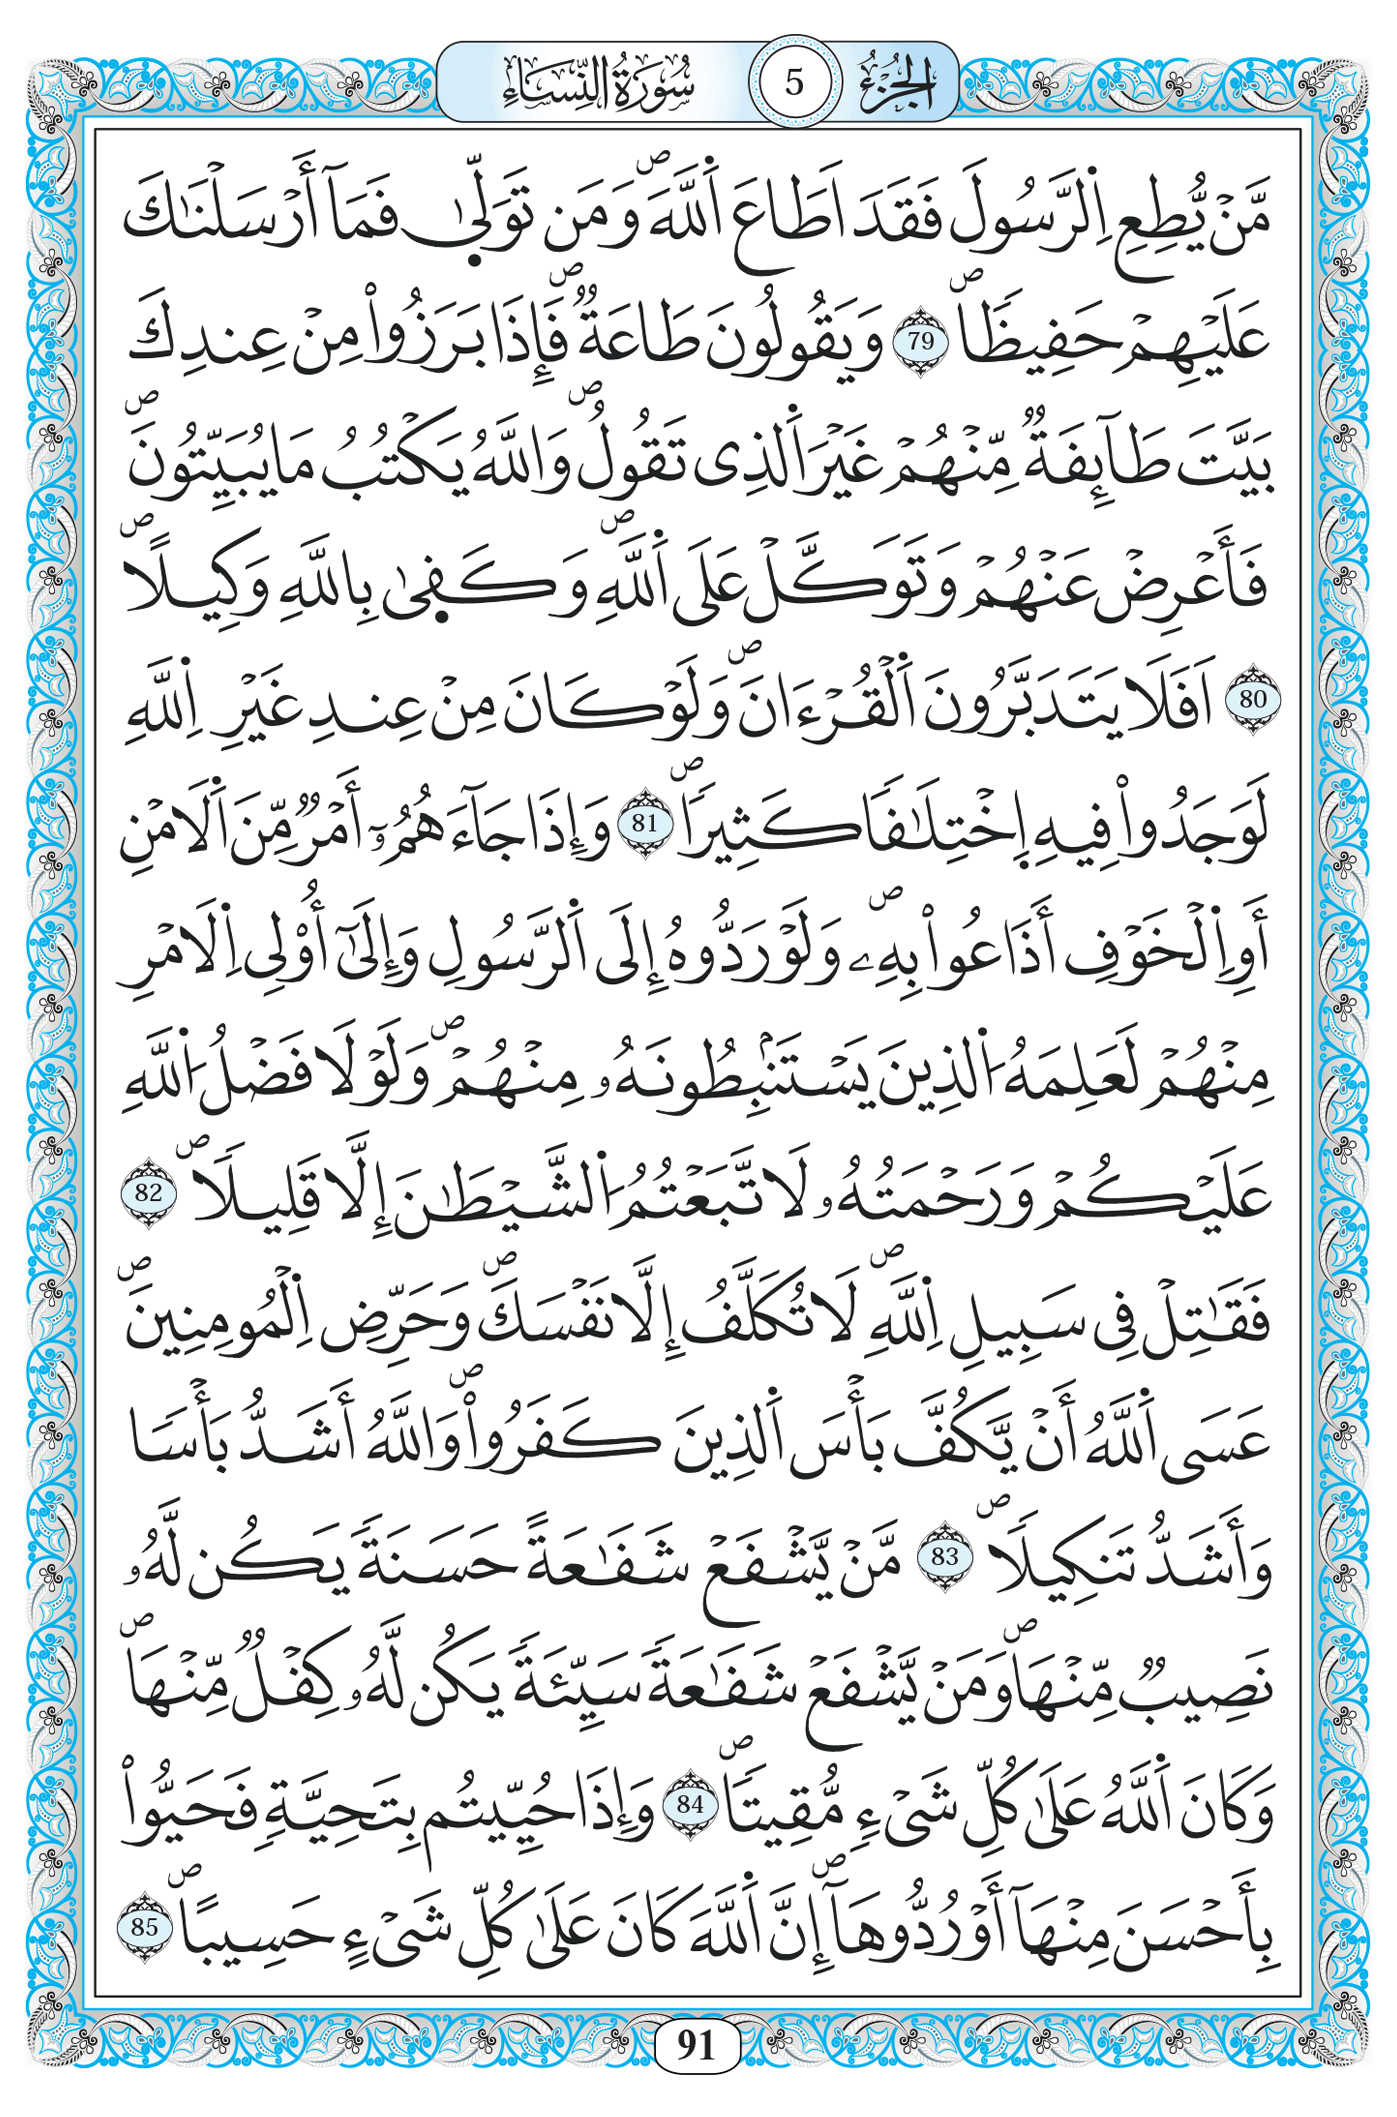 الجزء 5 سورة النساء
مَّنْ يُّطِعِ اِ۬لرَّسُولَ فَقَدَ اَطَاعَ اَ۬للَّهَۖ وَمَن تَوَلّ۪ىٰ فَمَآ أَرْسَلْنَٰكَ
عَلَيْهِمْ حَفِيظاٗۖ 79 وَيَقُولُونَ طَاعَةٞۖ فَإِذَا بَرَزُواْ مِنْ عِندِكَ
بَيَّتَ طَآئِفَةٞ مِّنْهُمْ غَيْرَ اَ۬لذِى تَقُولُۖ وَاللَّهُ يَكْتُبُ مَا يُبَيِّتُونَۖ
فَأَعْرِضْ عَنْهُمْ وَتَوَكَّلْ عَلَى اَ۬للَّهِۖ وَكَف۪ىٰ بِاللَّهِ وَكِيلًاۖ
80 اَفَلَا يَتَدَبَّرُونَ اَ۬لْقُرْءَانَۖ وَلَوْ كَانَ مِنْ عِندِ غَيْرِ اِ۬للَّهِ
لَوَجَدُواْ فِيهِ إِ۪خْتِلَٰفاٗ كَثِيراٗۖ 81 وَإِذَا جَآءَهُمُۥٓ أَمْرٞ مِّنَ اَ۬لَامْنِ
أَوِ اِ۬لْخَوْفِ أَذَاعُواْ بِهِۦۖ وَلَوْ رَدُّوهُ إِلَى اَ۬لرَّسُولِ وَإِلَىٰٓ أُوْلِى اِ۬لَامْرِ
مِنْهُمْ لَعَلِمَهُ اُ۬لذِينَ يَسْتَنۢبِطُونَهُۥ مِنْهُمْۖ وَلَوْلَا فَضْلُ اُ۬للَّهِ
عَلَيْكُمْ وَرَحْمَتُهُۥ لَا تَّبَعْتُمُ اُ۬لشَّيْطَٰنَ إِلَّا قَلِيلاٗۖ 82
فَقَٰتِلْ فِى سَبِيلِ اِ۬للَّهِۖ لَا تُكَلَّفُ إِلَّا نَفْسَكَۖ وَحَرِّضِ اِ۬لْمُومِنِينَۖ
عَسَى اَ۬للَّهُ أَنْ يَّكُفَّ بَأْسَ اَ۬لذِينَ كَفَرُواْۖ وَاللَّهُ أَشَدُّ بَأْساٗ
وَأَشَدُّ تَنكِيلاٗۖ 83 مَّنْ يَّشْفَعْ شَفَٰعَةً حَسَنَةٗ يَكُن لَّهُۥ
نَصِيبٞ مِّنْهَاۖ وَمَنْ يَّشْفَعْ شَفَٰعَةٗ سَيِّئَةٗ يَكُن لَّهُۥ كِفْلٞ مِّنْهَاۖ
وَكَانَ اَ۬للَّهُ عَلَىٰ كُلِّ شَىْءٖ مُّقِيتاٗۖ 84 وَإِذَا حُيِّيتُم بِتَحِيَّةٖ فَحَيُّواْ
بِأَحْسَنَ مِنْهَآ أَوْ رُدُّوهَآۖ إِنَّ اَ۬للَّهَ كَانَ عَلَىٰ كُلِّ شَىْءٍ حَسِيباًۖ 85
91